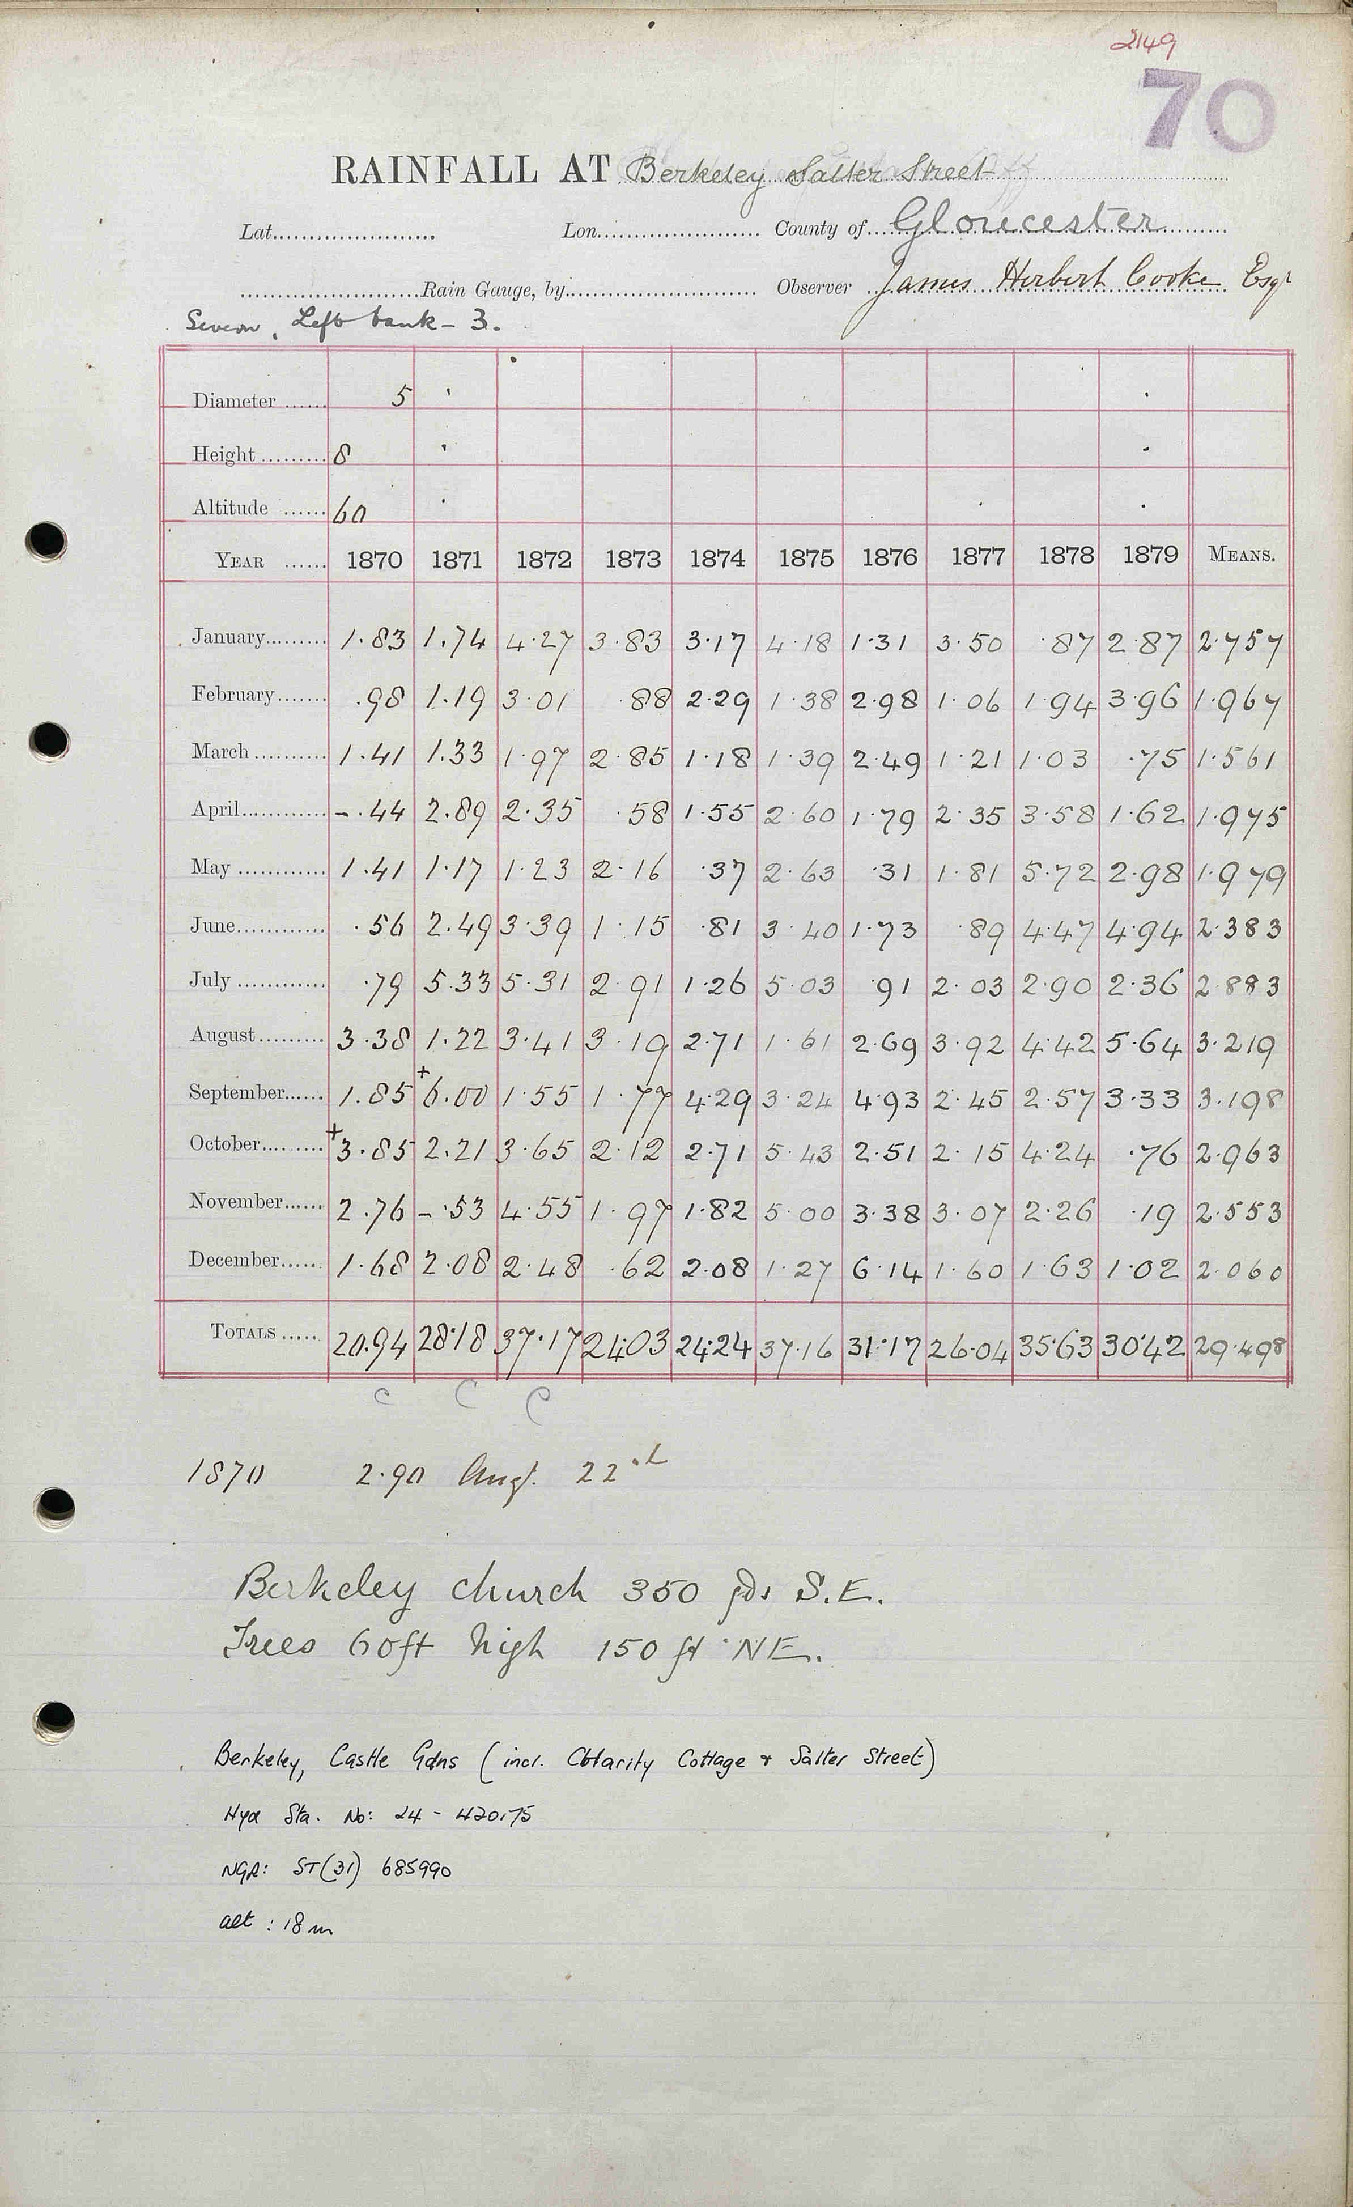 2149
70
RAINFALL AT Berkeley Salter Street
Lat. Lon. County of Gloucester
Rain Gauge, by Observer James Herbert Cooke Esqr
Severn, Left bank - 3.
Diameter 5
Height 8
Altitude 60
YEAR 1870 1871 1872 1873 1874 1875 1876 1877 1878 1879 MEANS.
January 1.83 1.74 4.27 3.83 3.17 4.18 1.31 3.50 .87 2.87 2.757
February .98 1.19 3.01 .88 2.29 1.38 2.98 1.06 1.94 3.96 1.967
March 1.41 1.33 1.97 2.85 1.18 1.39 2.49 1.21 1.03 .75 1.561
April -.44 2.89 2.35 .58 1.55 2.60 1.79 2.35 3.58 1.62 1.975
May 1.41 1.17 1.23 2.16 .37 2.63 .31 1.81 5.72 2.98 1.979
June .56 2.49 3.39 1.15 .81 3.40 1.73 .89 4.47 4.94 2.383
July .79 5.33 5.31 2.91 1.26 5.03 .91 2.03 2.90 2.36 2.883
August 3.38 1.22 3.41 3.19 2.71 1.61 2.69 3.92 4.42 5.64 3.219
September 1.85 +6.00 1.55 1.77 4.29 3.24 4.93 2.45 2.57 3.33 3.198
October +3.85 2.21 3.65 2.12 2.71 5.43 2.51 2.15 4.24 .76 2.963
November 2.76 -.53 4.55 1.97 1.82 5.00 3.38 3.07 2.26 .19 2.553
December 1.68 2.08 2.48 .62 2.08 1.27 6.14 1.60 1.63 1.02 2.060
TOTALS 20.94 28.18 37.17 24.03 24.24 37.16 31.17 26.04 35.63 30.42 29.498
c c c
1870 2.90 Augt. 22nd
Berkeley church 350 yds S.E.
Trees 60ft high 150 ft NE.
Berkeley, Castle Gdns (incl. Charity Cottage & Salter Street)
Sta. No: 24 - 420175
NGR: ST(31) 685990
alt : 18m